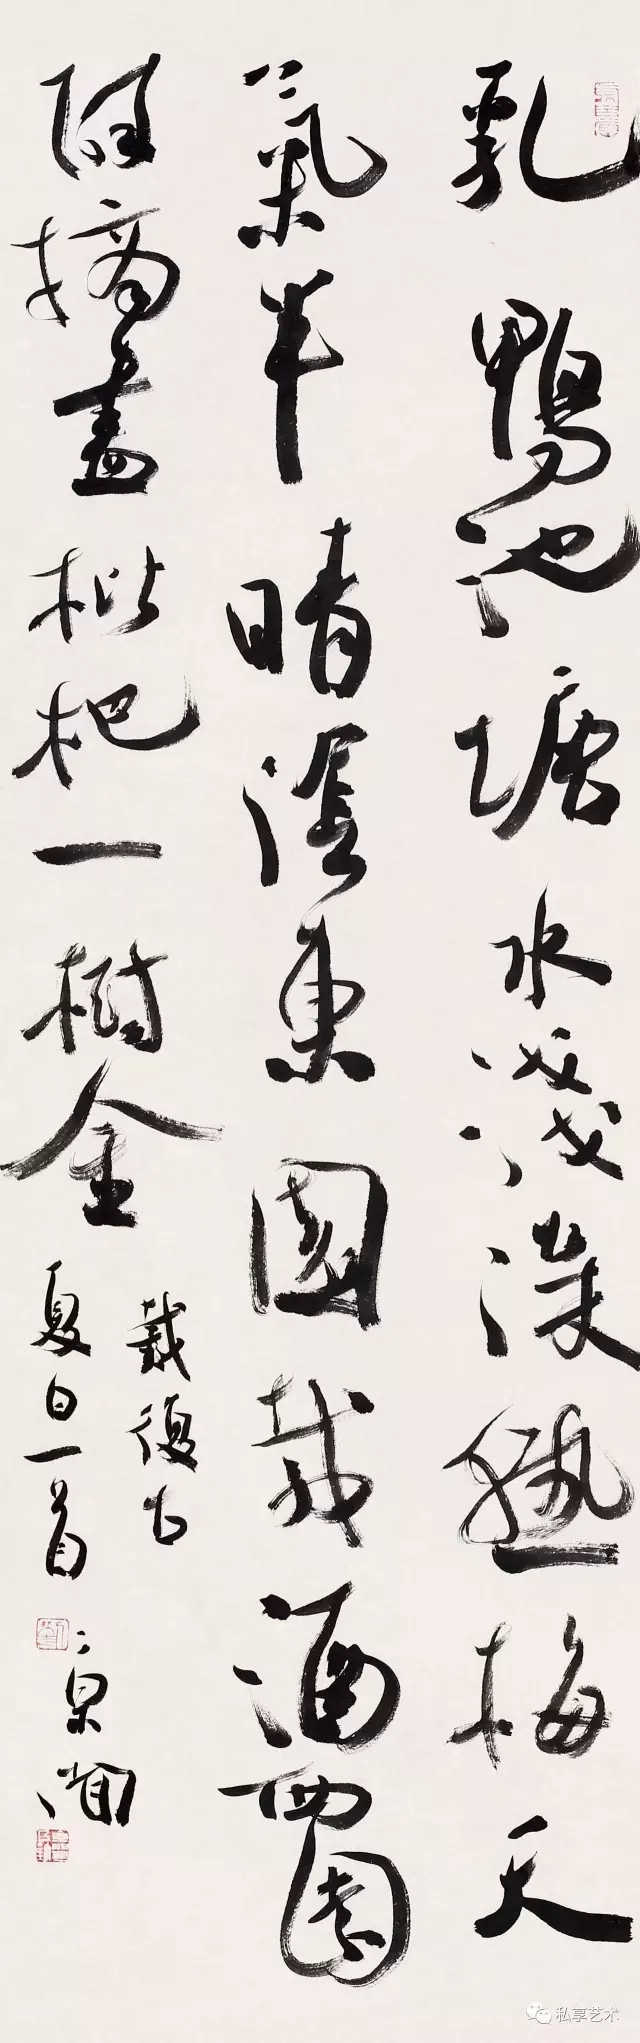 乳鴨池塘水淺深熟梅天
氣半晴陰東園載酒西園
醉摘盡枇杷一樹金
戴復古
夏日一首
京聞
私享艺术